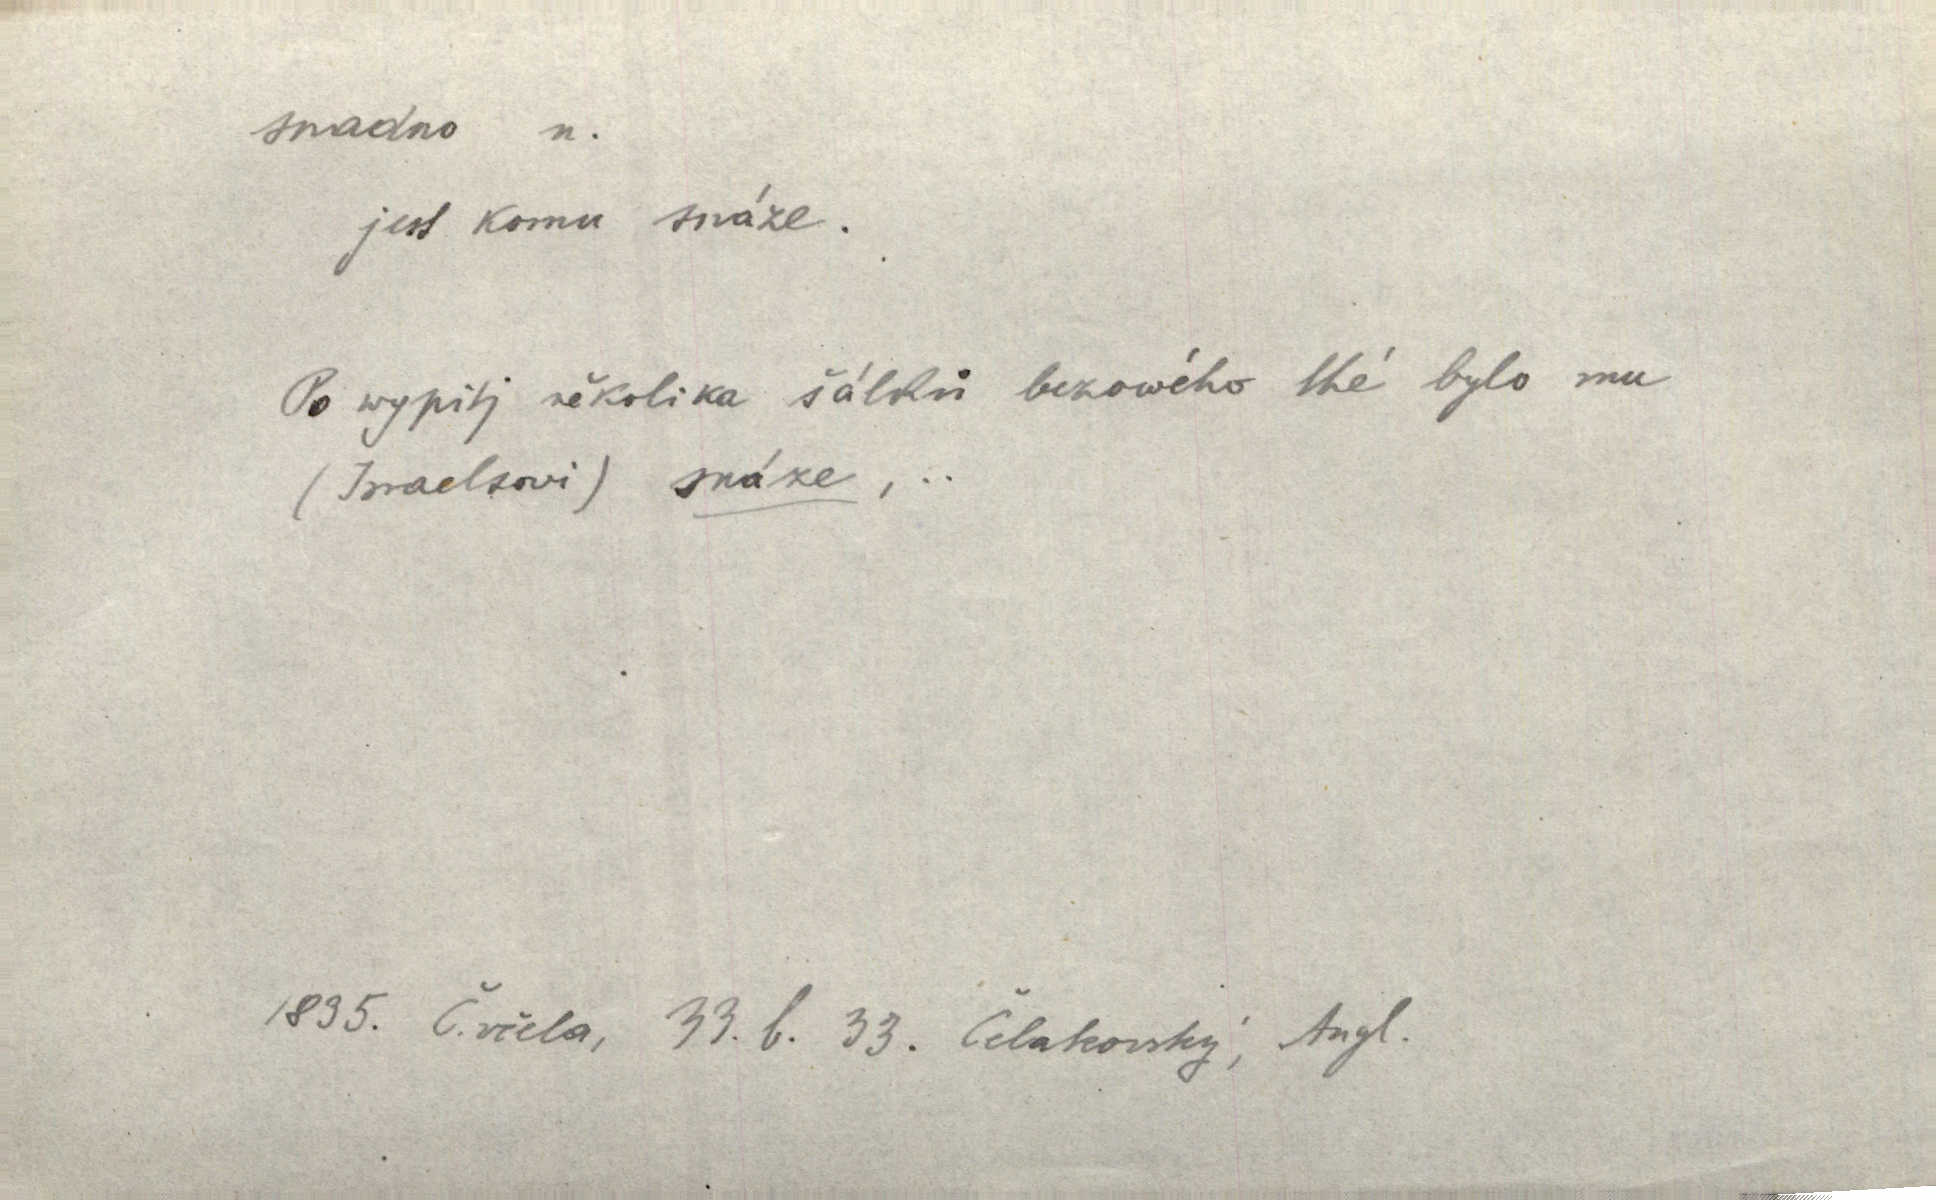 snadno n.
jest komu snáze.
Po wypitj několika šálků bezowého thé bylo mu
(Israelsovi) snáze, ..
1835. Č. včela, 33. b. 33. Čelakovský, Angl.